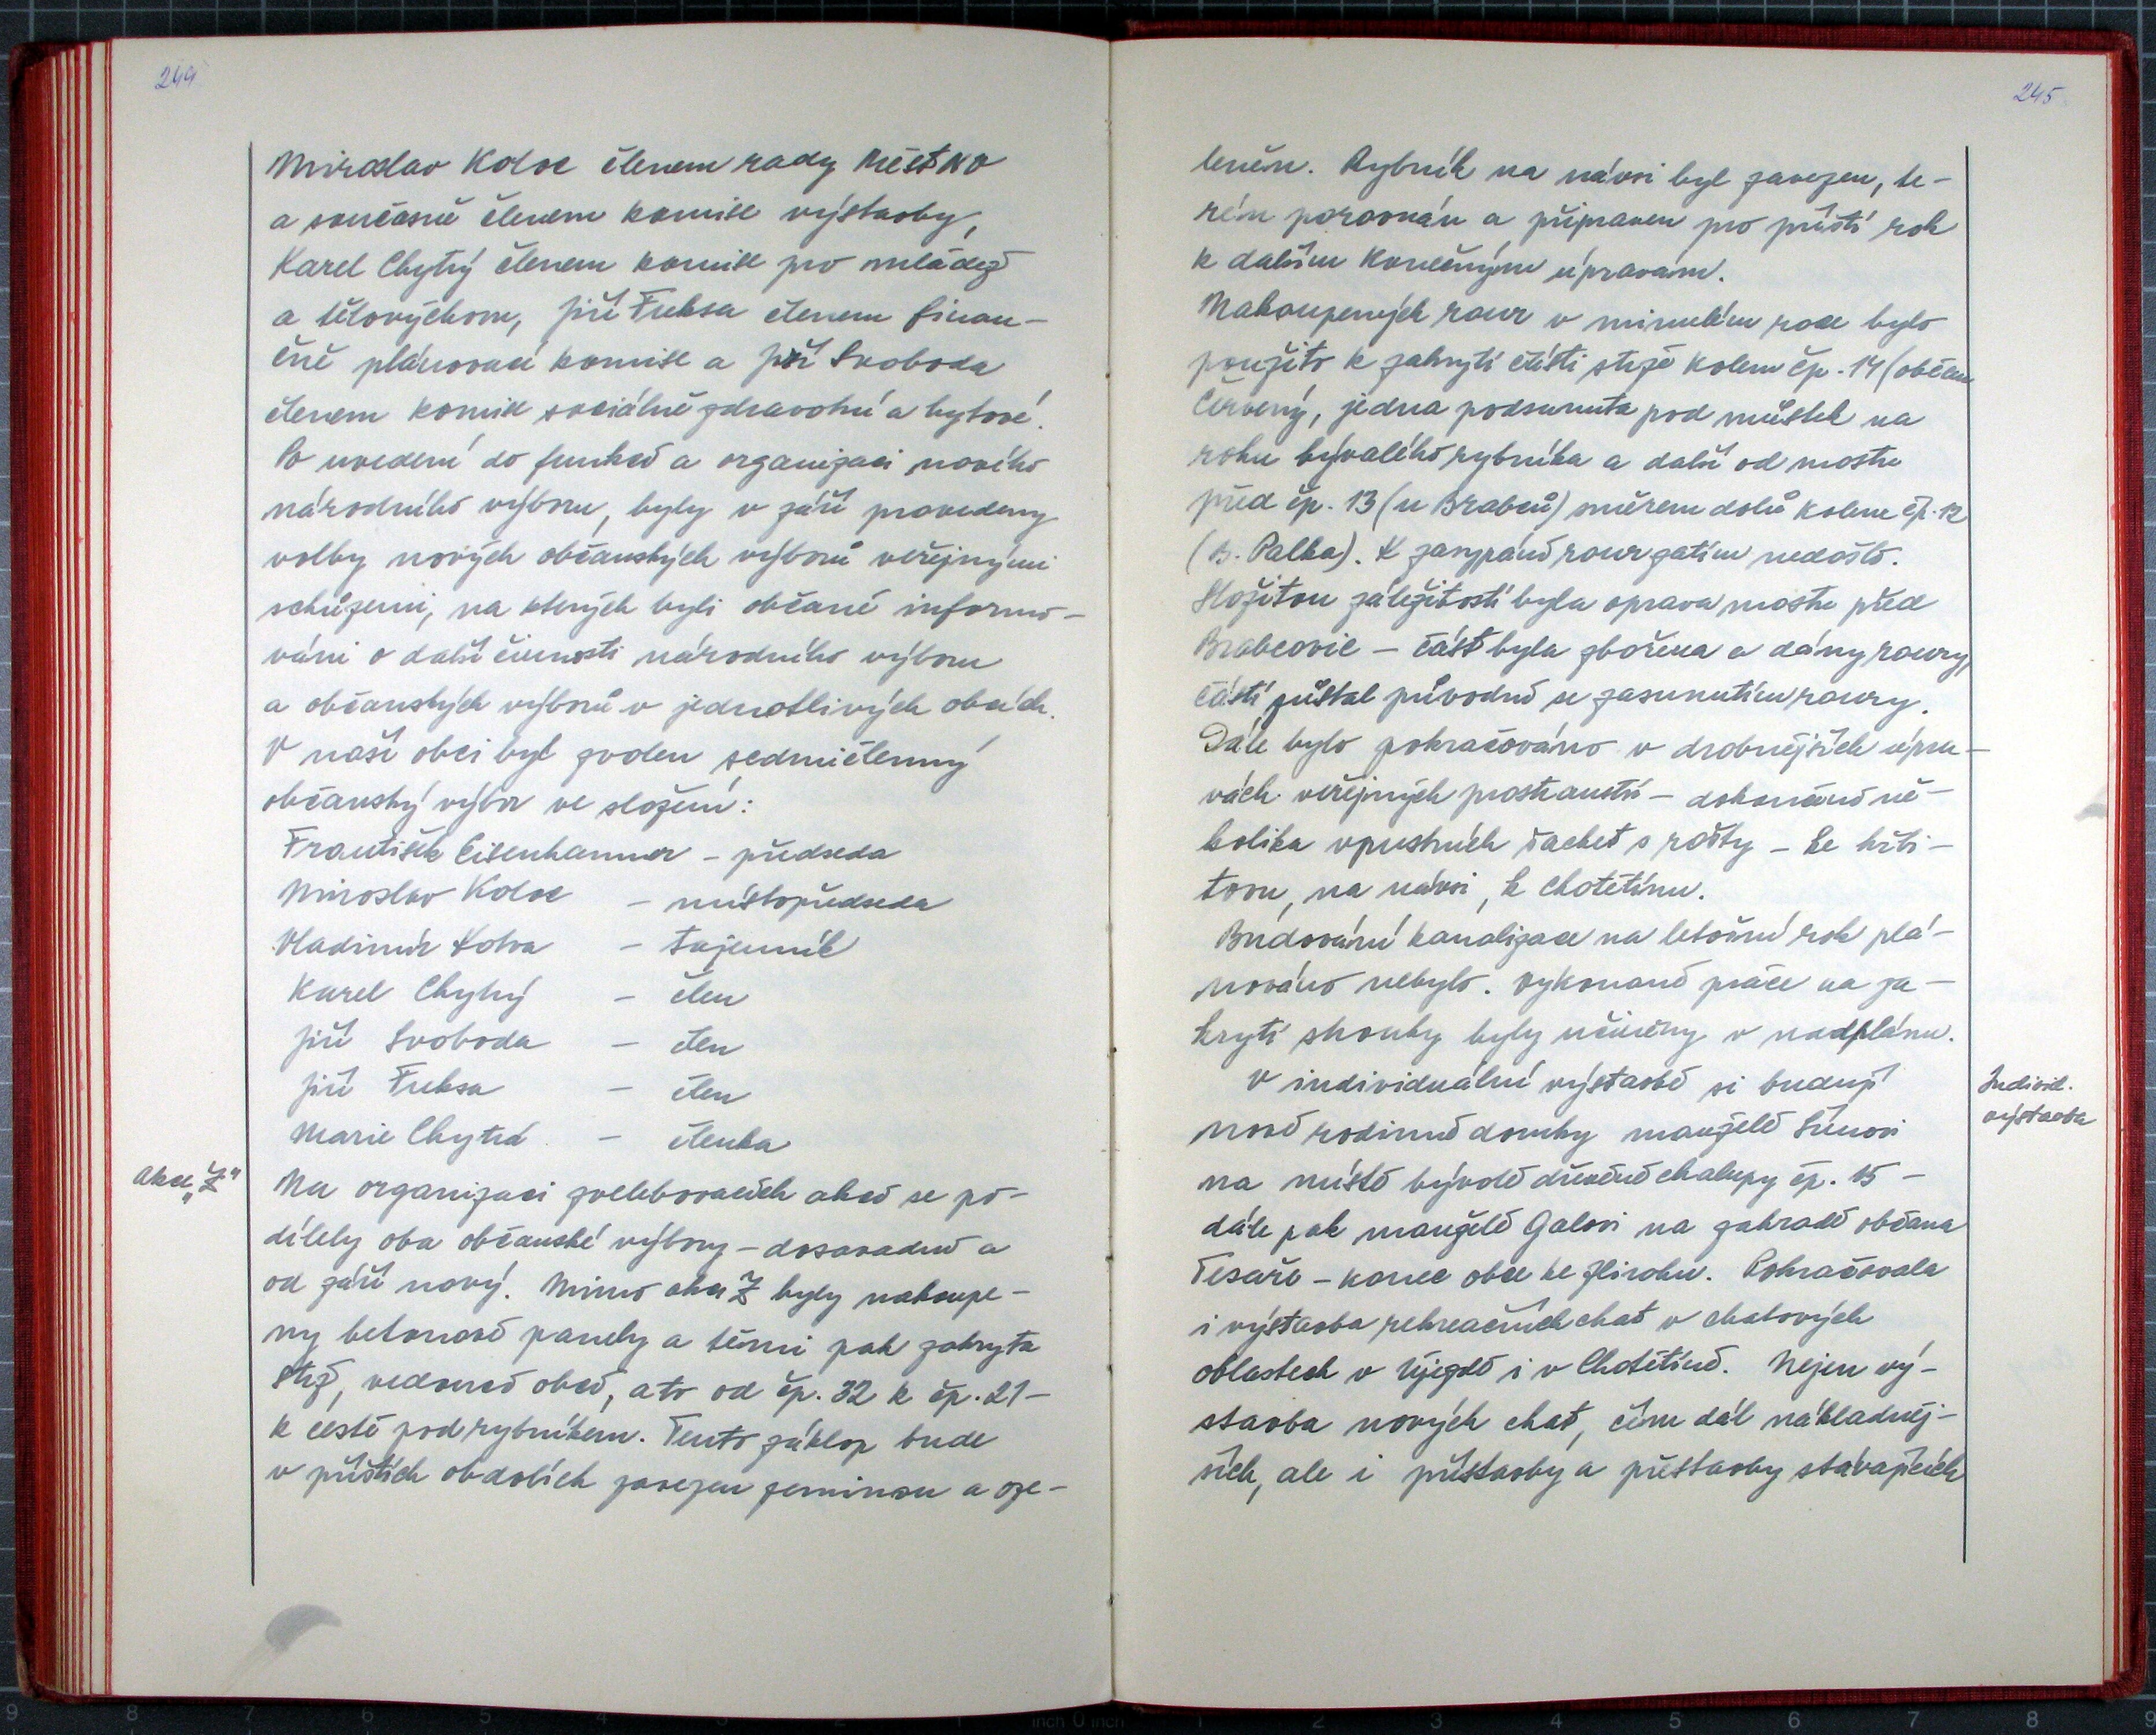 244
Miroslav Kolve členem rady MěstNV
a současně členem komise výstavby,
Karel Chytrý členem komise pro mládež
a tělovýchovu, Jiří Fuksa členem finan-
čně plánovací komise a Jiří Svoboda
členem komise sociálně zdravotní a bytové.
Po uvedení do funkcí a organizaci nového
národního výboru, byly v září provedeny
volby nových občanských výborů veřejnými
schůzemi, na kterých byli občané informo-
váni o další činnosti národního výboru
a občanských výborů v jednotlivých obcích.
V naší obci byl zvolen sedmičlenný
občanský výbor ve složení:
František Eisenhammer - předseda
Miroslav Kolve - místopředseda
Vladimír Kotva - tajemník
Karel Chytrý - člen
Jiří Svoboda - člen
Jiří Fuksa - člen
Marie Chytrá - členka
Akce „Z"
Na organizaci zvelebovacích akcí se po-
dílely oba občanské výbory - dosavadní a
od září nový. Mimo akci Z byly nakoupe-
ny betonové panely a těmi pak zakryta
stož, vedoucí obcí, a to od čp. 32 k čp. 21 -
k cestě pod rybníkem. Tento záklop bude
v příštích obdobích zavezen zeminou a oze-
245
leněn. Rybník na návsi byl zavezen, te-
rén porovnán a připraven pro příští rok
k dalším konečným úpravám.
Nakoupených rour v minulém roce bylo
použito k zakrytí části stože kolem čp. 14 (občan
Červený, jedna podsunuta pod můstek na
rohu bývalého rybníka a další od mostu
před čp. 13 (u Brabců) směrem dolů kolem čp. 12
(B. Palka). K zasypání rour zatím nedošlo.
Složitou záležitostí byla oprava mostu před
Brabcovic - část byla zbořena a dány roury,
částí zůstal původní se zasunutím roury.
Dále bylo pokračováno v drobnějších úpra-
vách veřejných prostranství - dokončení ně-
kolika vpustních šachet s rošty - ke hřbi-
tovu, na návsi, k Chotětínu.
Budování kanalizace na letošní rok plá-
nováno nebylo. Vykonané práce na za-
krytí stouhy byly učiněny v nadplánu.
V individuální výstavbě si budují
Individ.
výstavba
nové rodinné domky manželé Šůnovi
na místě bývalé dřevěné chalupy čp. 15 -
dále pak manželé Galovi na zahradě občana
Tesaře - konec obce ke Zlivohu. Pokračovala
i výstavba rekreačních chat v chatových
oblastech v Újezdě i v Chotětíně. Nejen vý-
stavba nových chat, čím dál nákladněj-
ších, ale i přístavby a přestavby stávajících